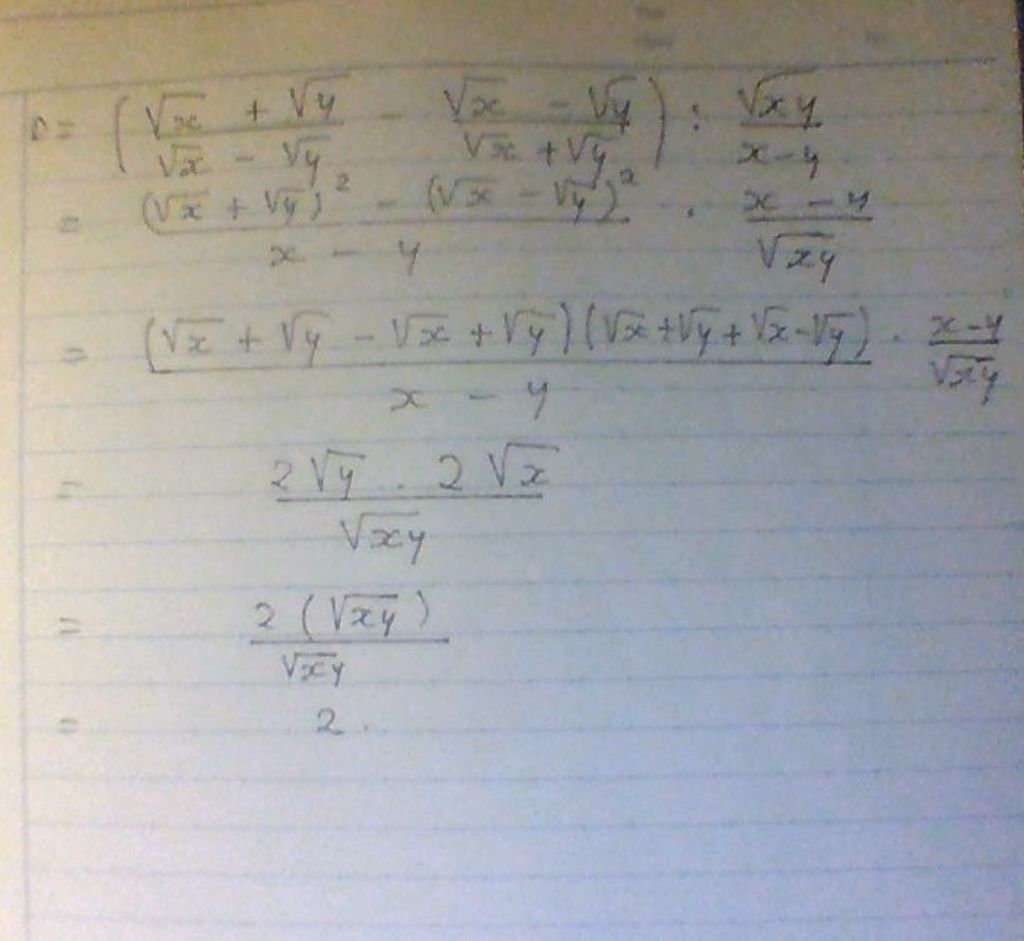 D = ( (√x + √y)/(√x - √y) - (√x - √y)/(√x + √y) ) : √xy/(x-y)
= ((√x + √y)² - (√x - √y)²)/(x - y) . (x - y)/√xy
= ((√x + √y - √x + √y)(√x + √y + √x - √y))/(x - y) . (x-y)/√xy
= (2√y . 2√x)/√xy
= 2(√xy)/√xy
= 2.